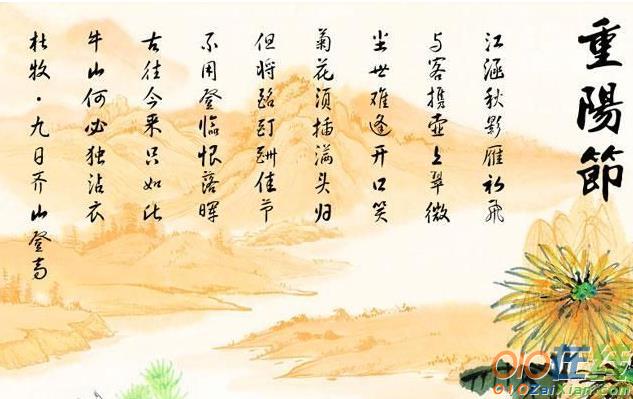 重陽節
江涵秋影雁初飛
与客携壶上翠微
尘世难逢开口笑
菊花须插满头归
但将酩酊酬佳节
不用登临恨落晖
古往今来只如此
牛山何必独沾衣
杜牧·九日齐山登高
910在线
910ZaiXian.com